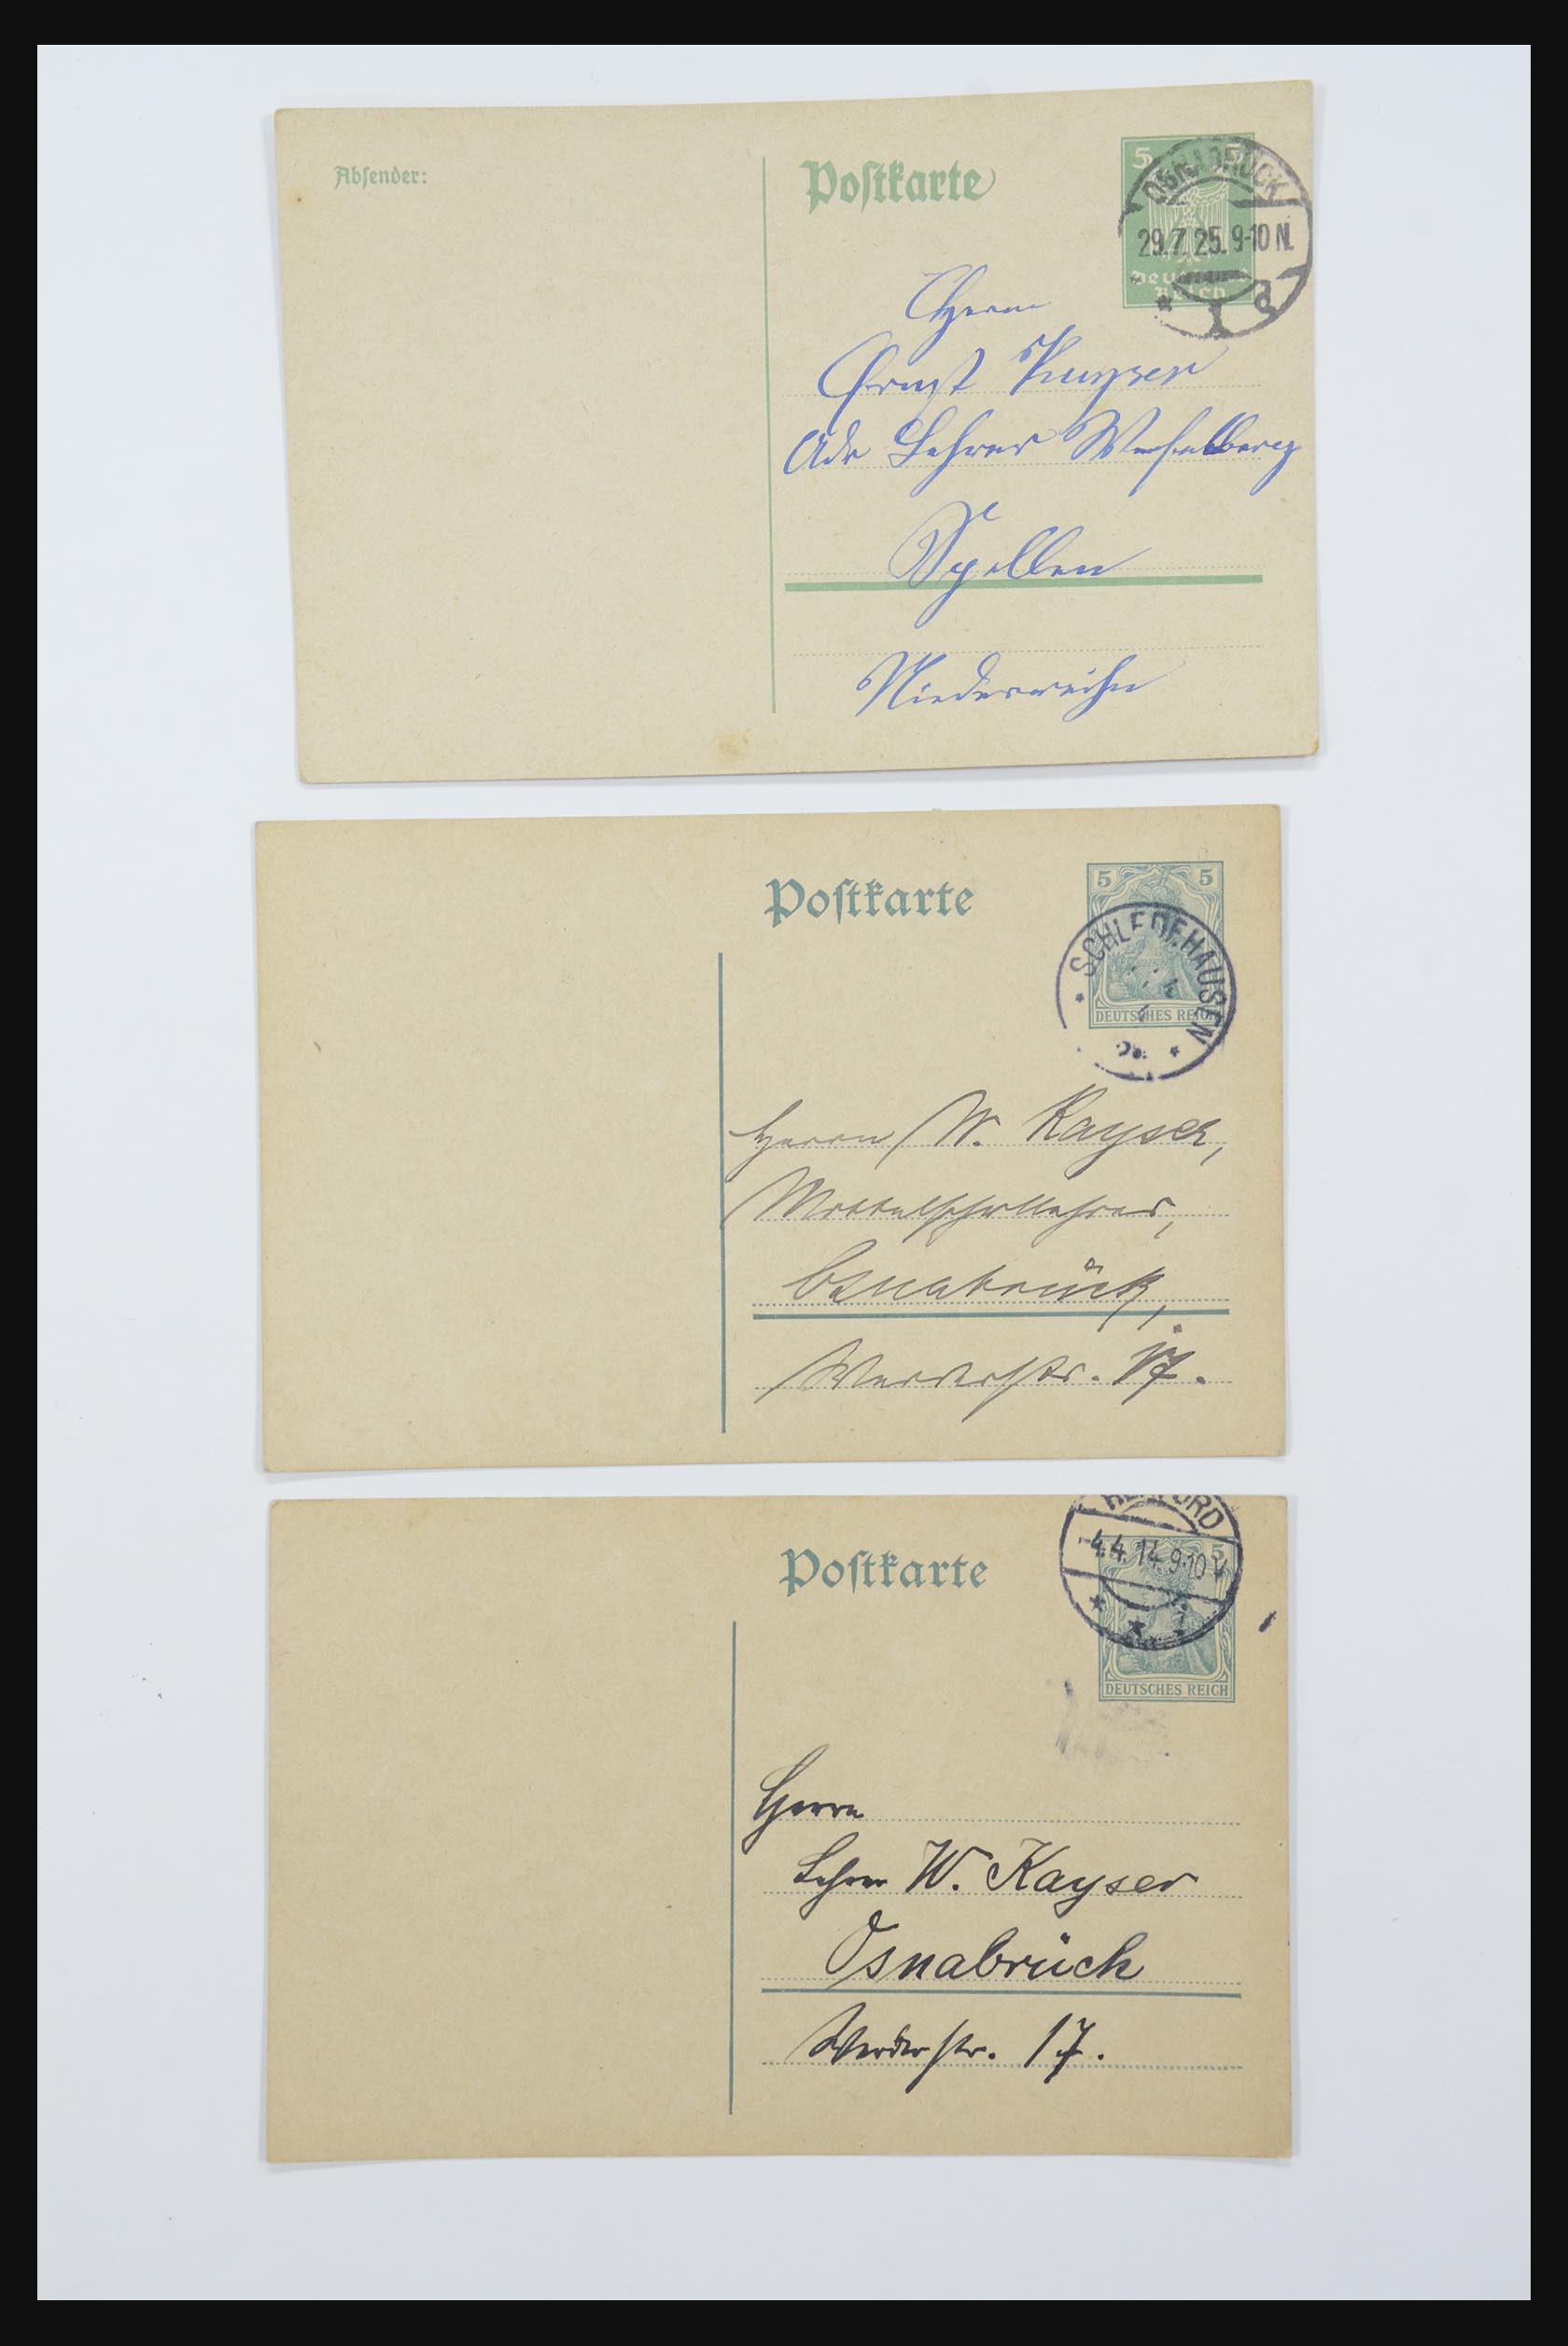 Absender:
Postkarte
5 5
OSNABRÜCK
29.7.25. 9-10 N.
* 1 d
Deutsches
Reich
Herrn
Ernst Kayser
Adr Lehrer
Spellen
Niederrhein
Postkarte
5 5
SCHLEDEHAUSEN
DEUTSCHES REICH
Herrn W. Kayser,
Mittelschullehrer,
Osnabrück,
Werderstr. 17.
Postkarte
HERFORD
5
4.4.14. 9-10 V
DEUTSCHES REICH
Herrn
Lehrer W. Kayser
Osnabrück
Werderstr. 17.